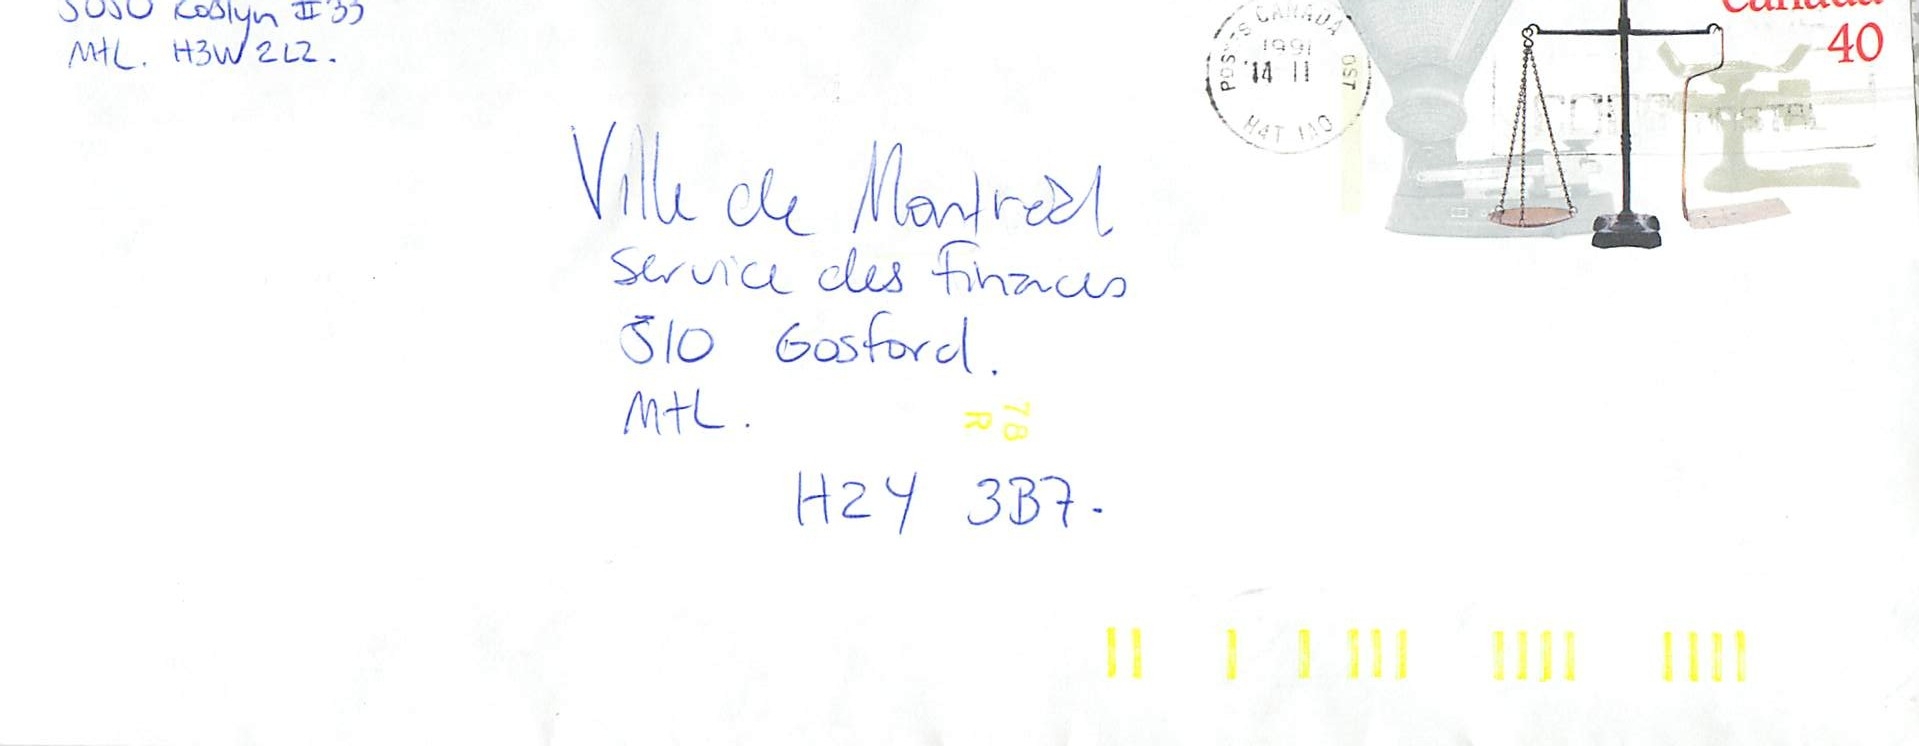 5050 Roslyn #33
MtL. H3W 2L2.
Canada
40
POSTES CANADA POST
1991
14 11
H4T 1A0
Ville de Montreal
Service des Finances
510 Gosford.
MtL.
78
R
H2Y 3B7.